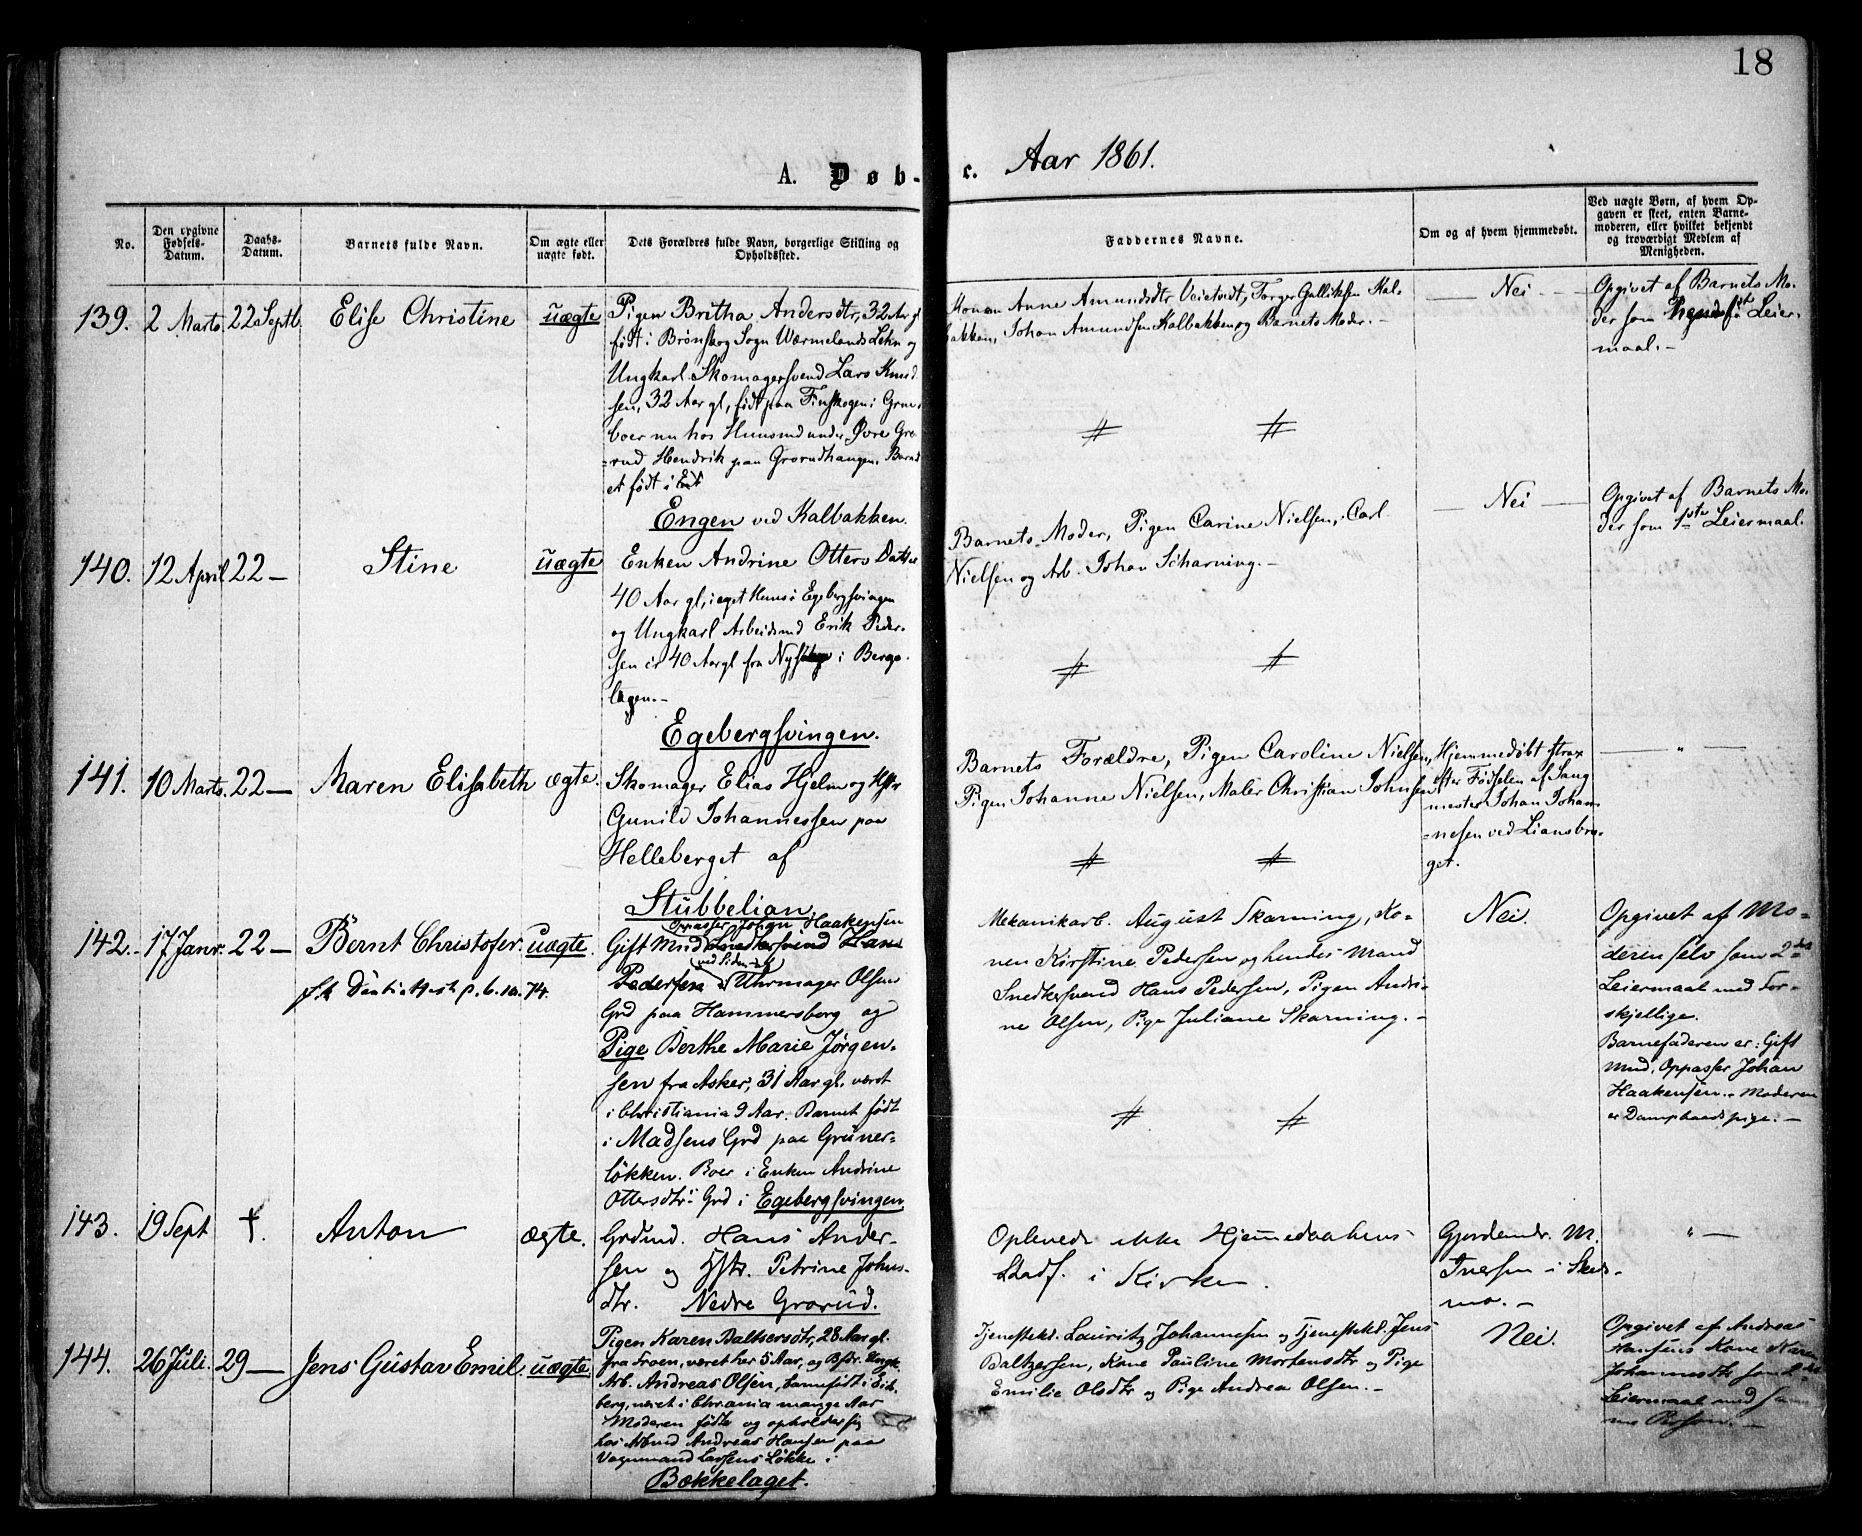 18
A. Døb-
c. Aar 1861.
No.
Den opgivne Fødsels-Datum.
Daabs-Datum.
Barnets fulde Navn.
Om ægte eller uægte født.
Dets Forældres fulde Navn, borgerlige Stilling og Opholdssted.
Faddernes Navne.
Om og af hvem hjemmedøbt.
Ved uægte Børn, af hvem Opgaven er skeet, enten Barnemoderen, eller hvilket bekjendt og troværdigt Medlem af Menigheden.
139. 2 Marts 22 Septb Elise Christine uægte
Pigen Britha Andersdtr, 32 Aar gl
født i Brønskog Sogn Wærmelands Lehn og
Ungkarl Skomagersvend Lars Knud
sen, 32 Aar gl, født paa Finskogen i Grue,
boer nu hos Huusmd under Øvre Gro-
=rud Hendrik paa Grorudhaugen. Barn
et født i
Engen ved Kalbakken.
Anne Amundsdtr Veietvedt, Torger Gulliksen Kal-
bakken, Johan Amundsen Kalbakken og Barnets Moder. -
Nei
Opgivet af Barnets Mo-
der som hendes 1st Leier-
maal. -
140. 12 April 22 — Stine uægte
Enken Andrine Otters Datter
40 Aar gl, i eget Huus i Egebergsvingen
og Ungkarl Arbeidsmd Erik Peder-
sen er 40 Aar gl fra i Bergs-
lagen. -
Egebergsvingen.
Barnets Moder, Pigen Carine Nielsen, Carl
Nielsen og Arb. Johan Scharning. -
Nei —
Opgivet af Barnets Mo-
der som 1ste Leiermaal.
141. 10 Marts. 22 — Maren Elisabeth ægte.
Skomager Elias Hjelm og Hstr
Gunild Johannessen paa
Helleberget af
Stubbelian
Barnets Forældre, Pigen Caroline Nielsen,
Pigen Johanne Nielsen, Maler Christian Johnsen
Hjemmedøbt strax
efter Fødselen af Sang
mester Johan Johan
=nesen ved Liansbra-
get.
— " —
142. 17 Janr. 22 — Bernt Christofer. uægte
Døbeattest p. 6. 10. 74.
Oppasser Johan Haakensen
Gift Mnd Snedkersvend Hans
Pedersen i Uhrmager Olsen
Grd paa Hammersborg og
Pige Berthe Marie Jørgen-
sen fra Asker, 31 Aar gl. været
i Christiania 9 Aar. Barnet født
i Madsens Grd paa Grüner-
løkken. Boer i Enken Andrine
Ottersdtr. Grd i Egebergsvingen
Mekanikarb. August Skarning, Ko-
nen Kirstine Pedersen og hendes Mand
Snedkersvend Hans Pedersen, Pigen Andri-
ne Olsen, Pige Juliane Skarning. -
Nei.
Opgivet af Mo-
deren selv som 2det
Leiermaal med For-
skjellige.
Barnefaderen er: Gift
Mnd. Oppasser Johan
Haakensen. - Moderen
er Dampbaadspige. -
143. 19 Sept †. Anton ægte.
Grdmd. Hans Ander-
sen og Hstr. Petrine Johns-
dtr. Nedre Grorud.
Oplevede ikke Hjemmedaabens
Stadf. i Kirken.
Gjordemdr. M.
Iversen i Skeds-
mo. -
" —
144. 26 Juli. 29 — Jens Gustav Emil. uægte
Pigen Karen Baltsersdtr, 28 Aar gl.
fra Froen, været her 5 Aar, og
Arb. Andreas Olsen, født i Eids-
berg, været i Chrania mange Aar
Moderen fødte og opholder sig
hos Arbmd Andreas Hansen paa
Vognmand Lassens Løkke i
Bækkelaget.
Tjenestekl. Lauritz Johannesen og Tjenestekl. Jens
Baltzersen, Kone Pauline Mortensdtr og Pige
Emilie Olsdtr og Pige Andrea Olsen. -
Nei.
Opgivet af Andreas
Hansens Kone
Johannesdtr som 2det
Leiermaal med sam
me Person. -